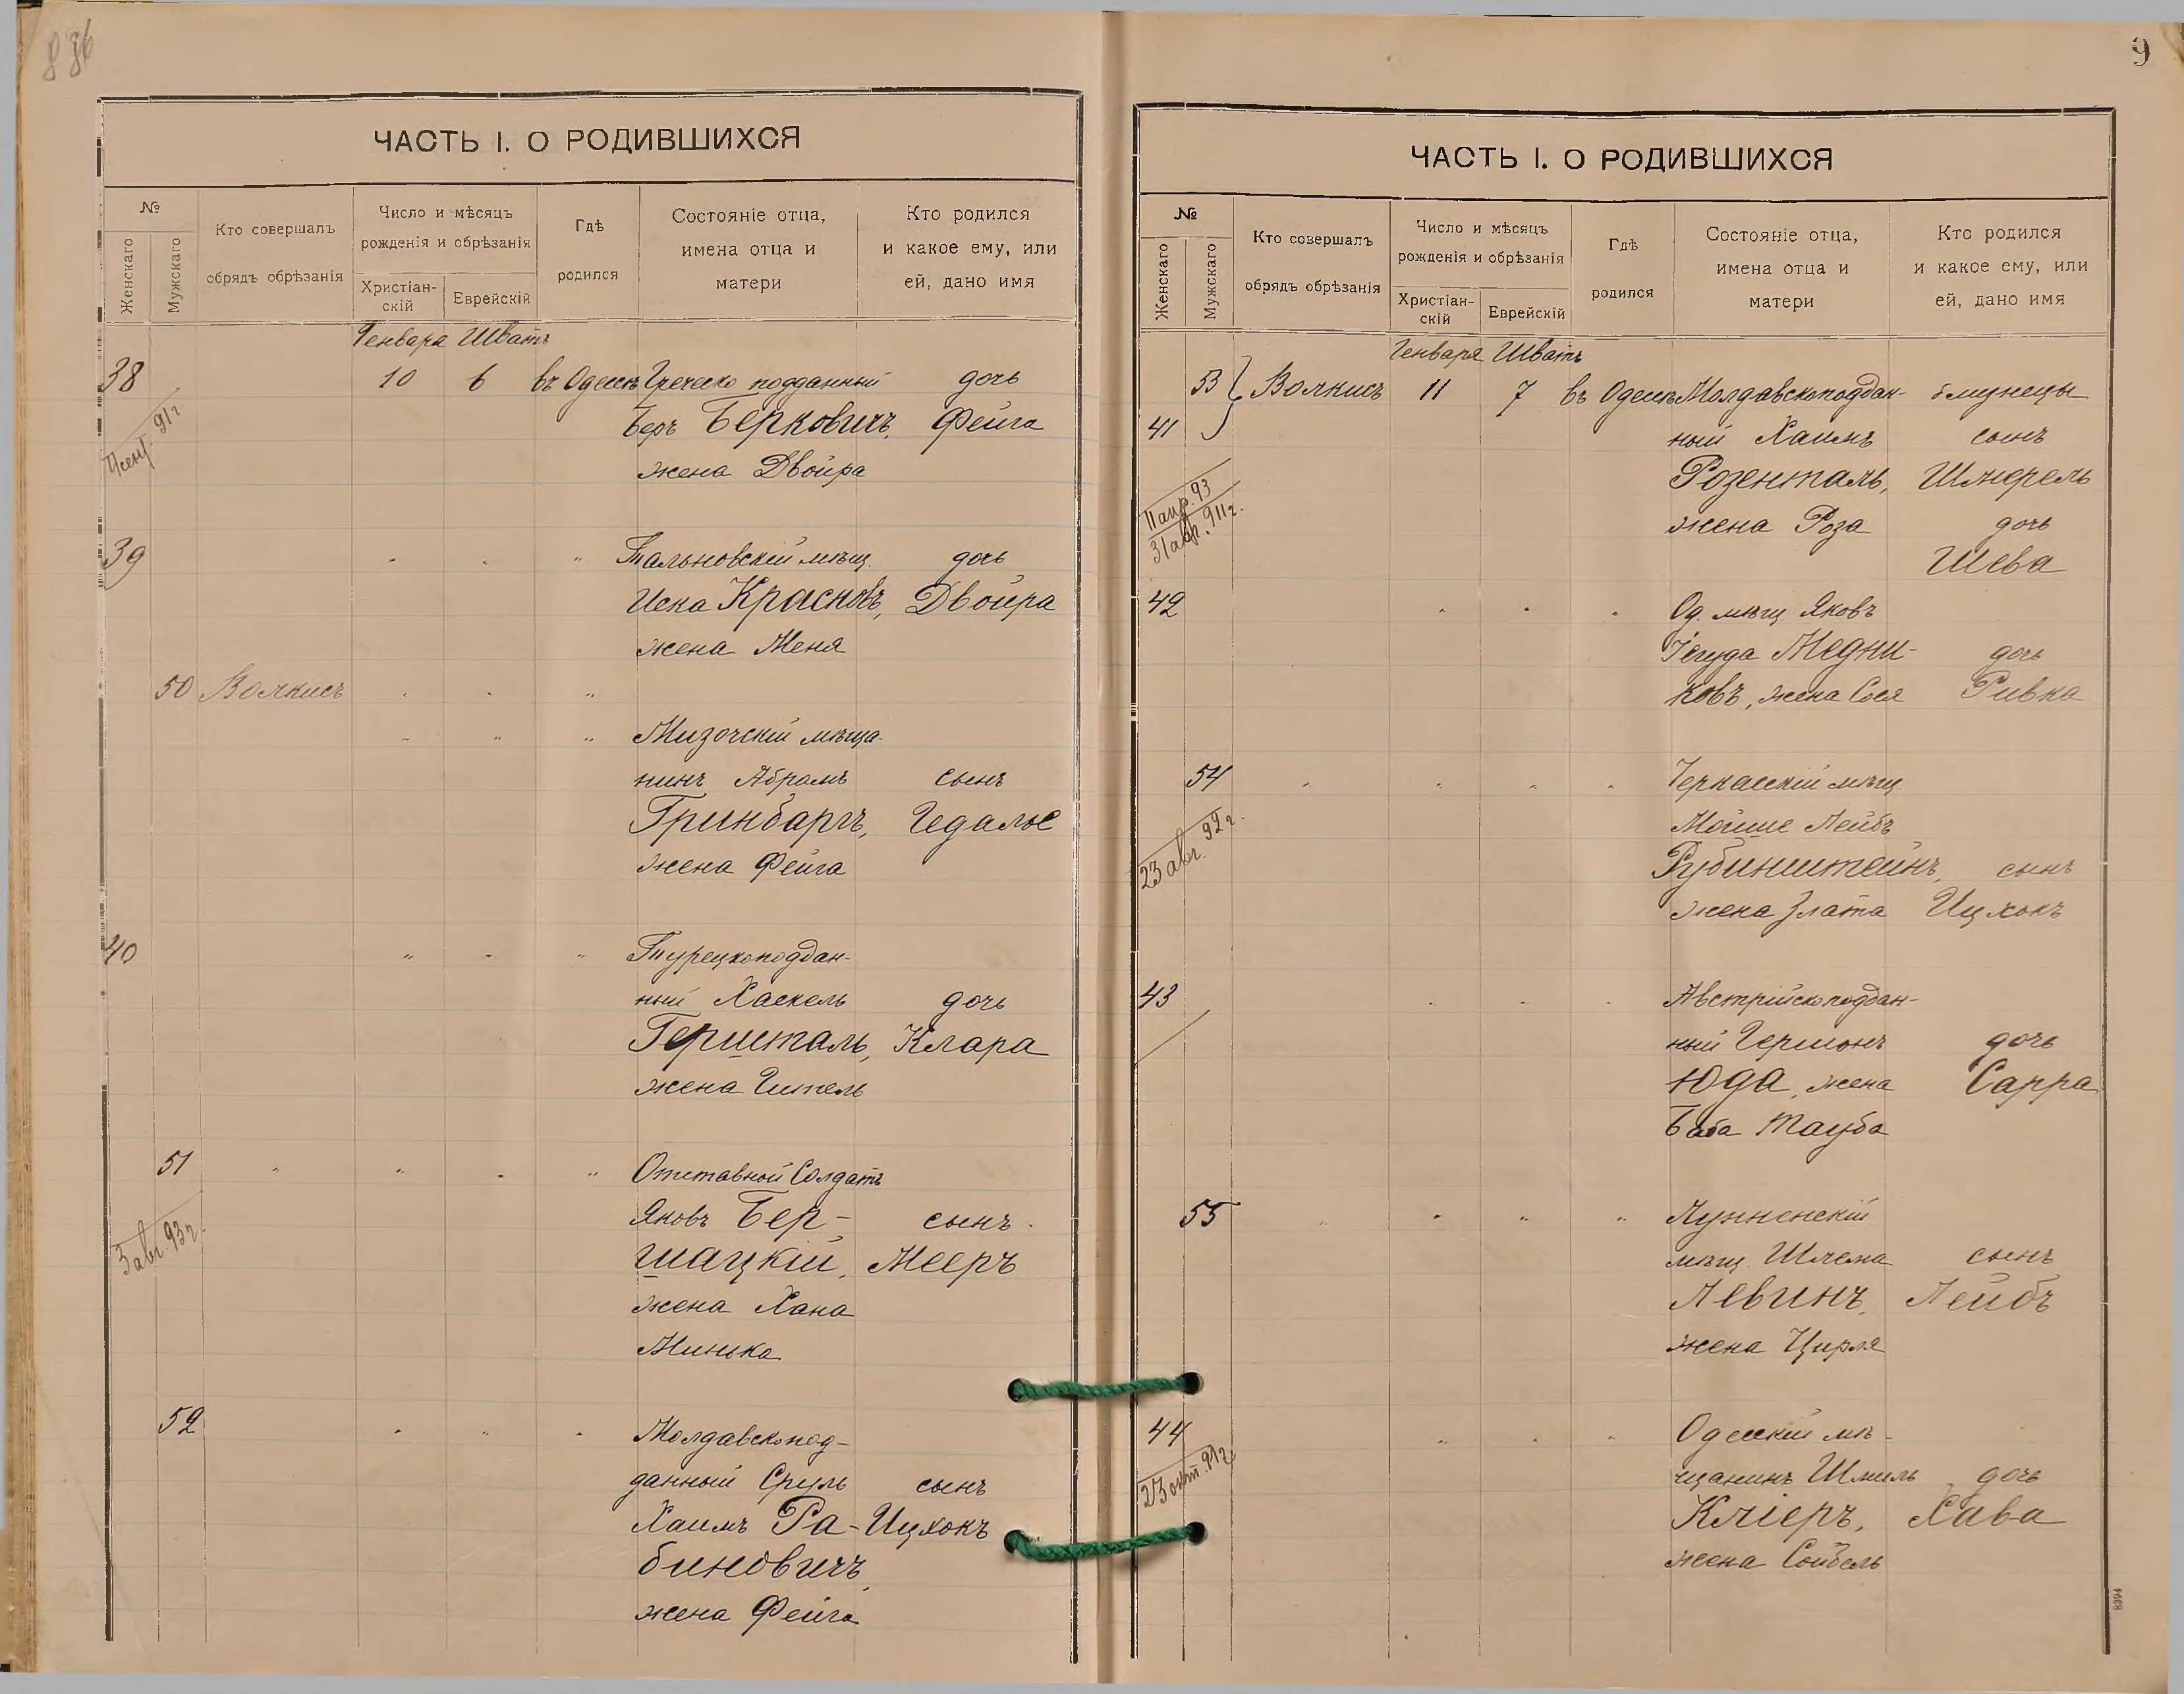 8 36
ЧАСТЬ I. О РОДИВШИХСЯ
№
Женскаго
Мужскаго
Кто совершалъ
обрядъ обрѣзанія
Число и мѣсяцъ
рожденія и обрѣзанія
Христіан-
скій
Еврейскій
Гдѣ
родился
Состояніе отца,
имена отца и
матери
Кто родился
и какое ему, или
ей, дано имя
Генваря Шватъ
38 10 6 въ Одессѣ Греческо подданный дочь
Беръ Берковичъ, Фейга
жена Двойра
11 сент. 91 г
39 " " " Тальновскій мѣщ. дочь
Иска Красновъ, Двойра
жена Меня
50 Волкисъ " " "
" " " Мизочскій мѣща-
нинъ Абрамъ сынъ
Гринбаргъ, Гедалье
жена Фейга
40 " " " Турецкоподдан-
ный Хаскель дочь
Гершталь, Клара
жена Гитель
51 " " " " Отставной Солдатъ
Яковъ Бер- сынъ
шацкій, Мееръ
жена Хана
Минька
3 авг. 93 г.
52 " " " Молдавскопод-
данный Сруль сынъ
Хаимъ Ра- Ицхокъ
биновичъ,
жена Фейга
9
ЧАСТЬ I. О РОДИВШИХСЯ
№
Женскаго
Мужскаго
Кто совершалъ
обрядъ обрѣзанія
Число и мѣсяцъ
рожденія и обрѣзанія
Христіан-
скій
Еврейскій
Гдѣ
родился
Состояніе отца,
имена отца и
матери
Кто родился
и какое ему, или
ей, дано имя
Генваря Шватъ
53 Волкисъ 11 7 въ Одессѣ Молдавскоподдан-
41 ный Хаимъ сынъ
Розенталь, Шмерель
жена Роза дочь
Шева
11 апр. 93
31 авг. 911 г.
42 " " " Од. мѣщ. Яковъ
Іегуда Медни- дочь
ковъ, жена Сося Ривка
54 " " " " Черкасскій мѣщ.
Мойше Лейбъ
Рубинштейнъ, сынъ
жена Злата Ицхокъ
23 авг. 92 г.
43 " " " Австрійскоподдан-
ный Гершонъ дочь
Юда, жена Сарра
Баба Тауба
55 " " " " Лунненскій
мѣщ. Шлема сынъ
Левинъ, Лейбъ
жена Цирля
44 " " " Одесскій мѣ-
щанинъ Шмиль дочь
Кліеръ, Хава
жена Сойбель
23 окт. 91 г.
8394